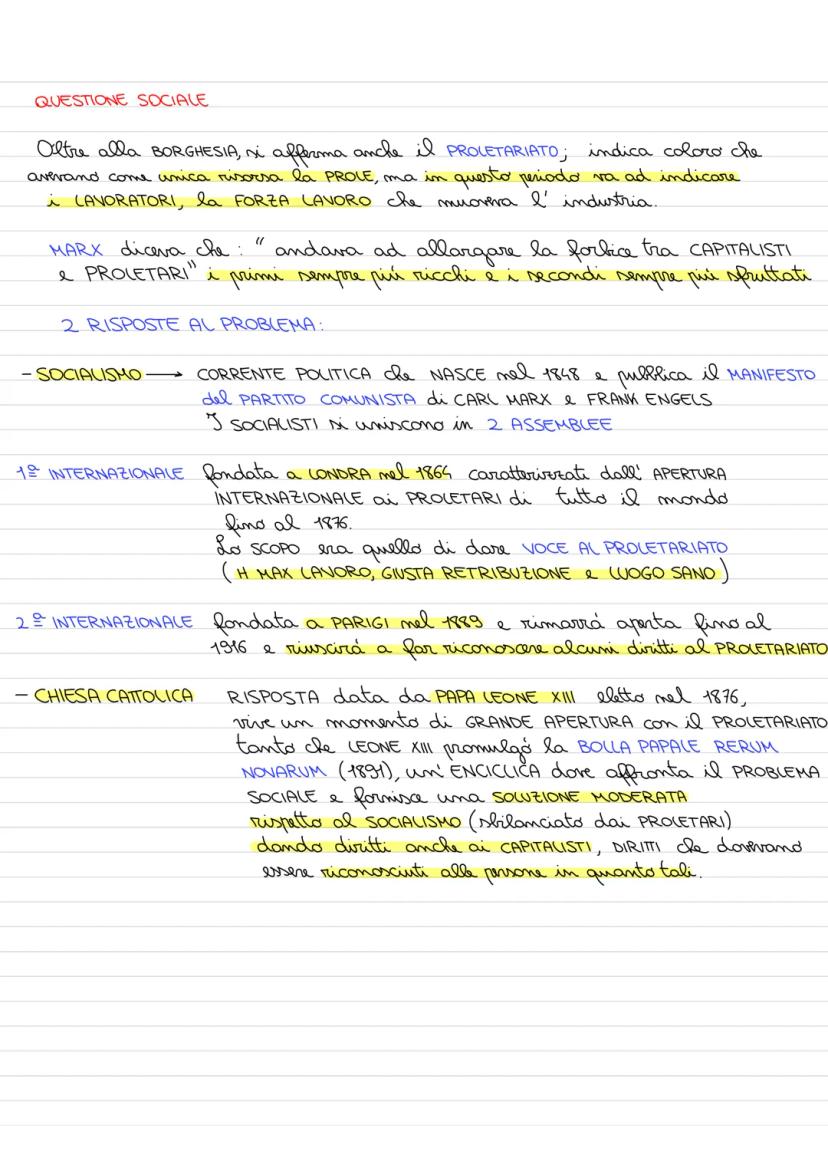 QUESTIONE SOCIALE
Oltre alla BORGHESIA, si afferma anche il PROLETARIATO; indica coloro che
avevano come unica risorsa la PROLE, ma in questo periodo va ad indicare
i LAVORATORI, la FORZA LAVORO che muoveva l'industria.
MARX diceva che : " andava ad allargare la forbice tra CAPITALISTI
e PROLETARI" i primi sempre più ricchi e i secondi sempre più sfruttati
2 RISPOSTE AL PROBLEMA:
- SOCIALISMO → CORRENTE POLITICA che NASCE nel 1848 e pubblica il MANIFESTO
del PARTITO COMUNISTA di CARL MARX e FRANK ENGELS
I SOCIALISTI si uniscono in 2 ASSEMBLEE
1ª INTERNAZIONALE fondata a LONDRA nel 1864 caratterizzati dall' APERTURA
INTERNAZIONALE ai PROLETARI di tutto il mondo
fino al 1876.
Lo SCOPO era quello di dare VOCE AL PROLETARIATO
(H MAX LAVORO, GIUSTA RETRIBUZIONE e LUOGO SANO)
2ª INTERNAZIONALE fondata a PARIGI nel 1889 e rimarrá aperta fino al
1916 e riuscirá a far riconoscere alcuni diritti al PROLETARIATO
- CHIESA CATTOLICA RISPOSTA data da PAPA LEONE XIII eletto nel 1876,
vive un momento di GRANDE APERTURA con il PROLETARIATO
tanto che LEONE XIII promulgó la BOLLA PAPALE RERUM
NOVARUM (1891), un' ENCICLICA dove affronta il PROBLEMA
SOCIALE e fornisce una SOLUZIONE MODERATA
rispetto al SOCIALISMO (sbilanciato dai PROLETARI)
dando diritti anche ai CAPITALISTI, DIRITTI che dovevano
essere riconosciuti alle persone in quanto tali.